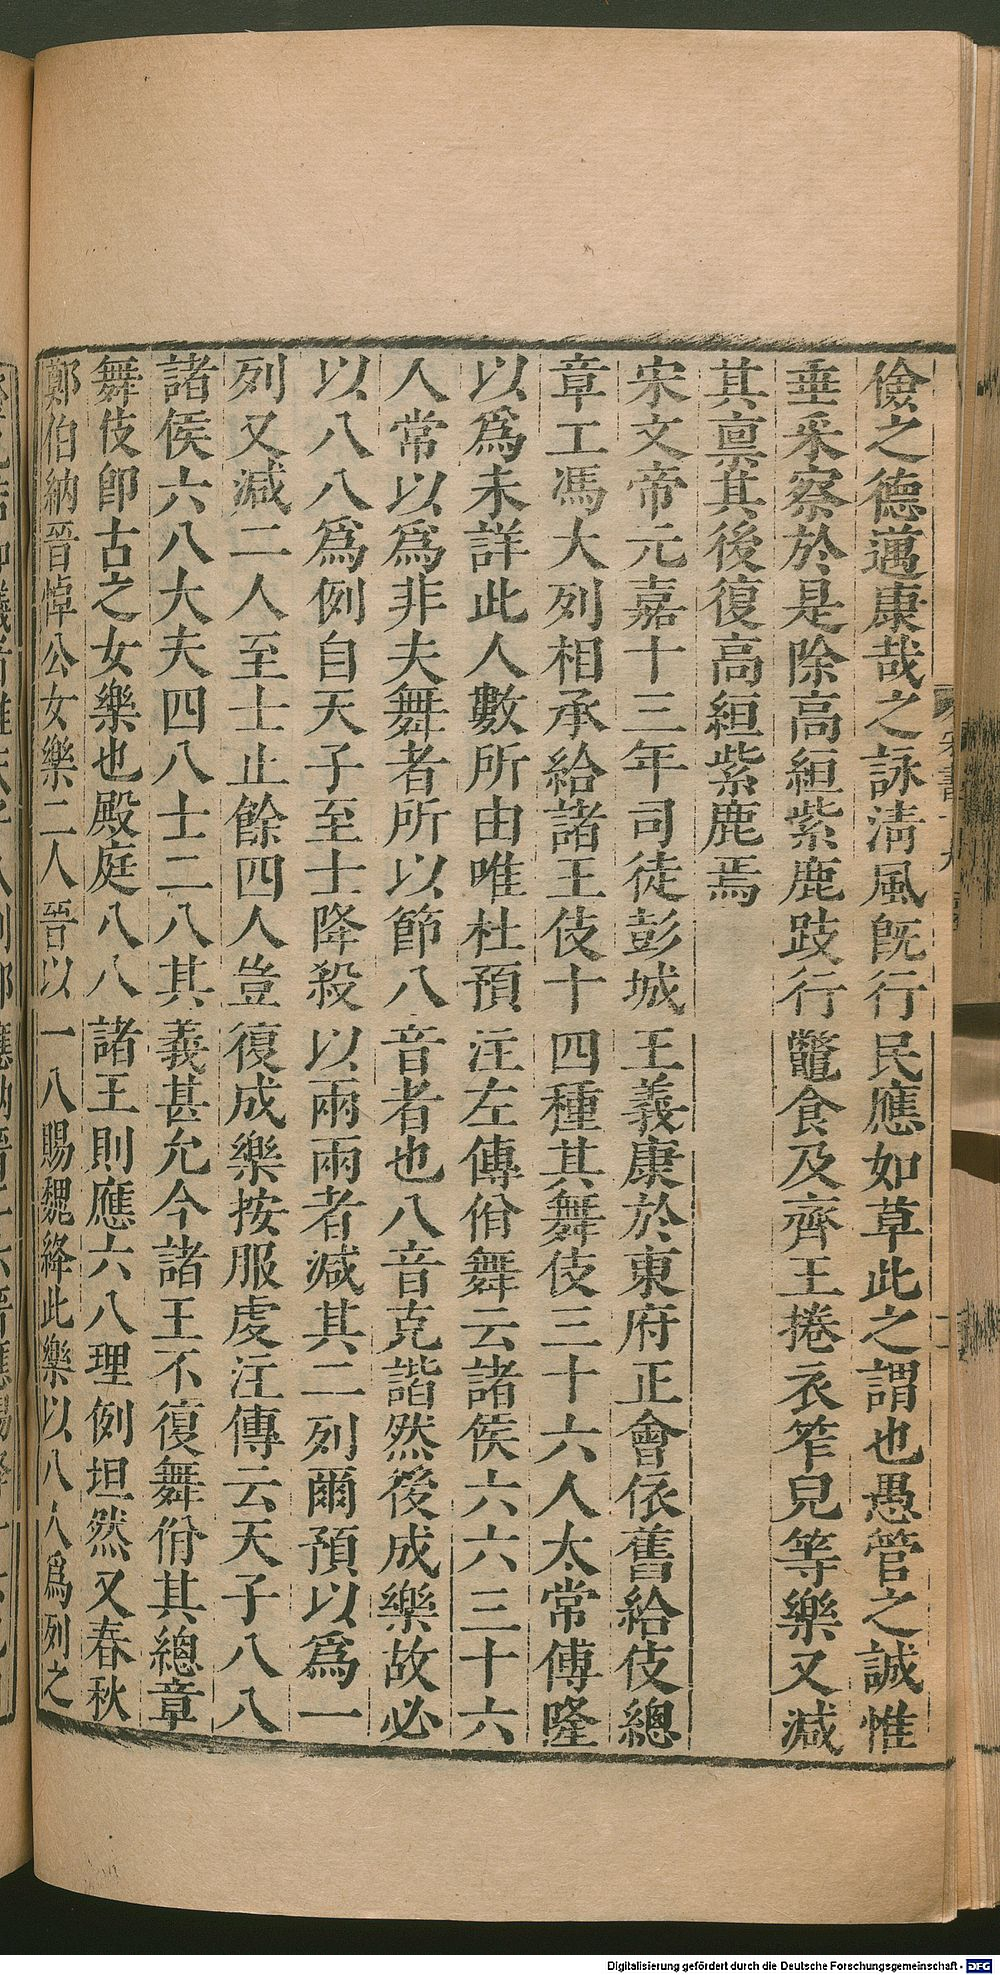 儉之德邁康哉之詠淸風旣行民應如草此之謂也愚管之誠惟
垂釆察於是除高絙紫鹿跂行鼈食及齊王捲衣笮兒等樂又減
其禀其後復高絙紫鹿焉
宋文帝元嘉十三年司徒彭城王義康於東府正會依舊給伎總
章工馮大列相承給諸王伎十四種其舞伎三十六人太常傅隆
以爲未詳此人數所由唯杜預注左傳佾舞云諸侯六六三十六
人常以爲非夫舞者所以節八音者也八音克諧然後成樂故必
以八八爲例自天子至士降殺以兩兩者減其二列爾預以爲一
列又減二人至士止餘四人豈復成樂按服虔注傳云天子八八
諸侯六八大夫四八士二八其義甚允今諸王不復舞佾其總章
舞伎卽古之女樂也殿庭八八諸王則應六八理例坦然又春秋
鄭伯納晉悼公女樂二八晉以一八賜魏絳此樂以八人爲列之
Digitalisierung gefördert durch die Deutsche Forschungsgemeinschaft - DFG